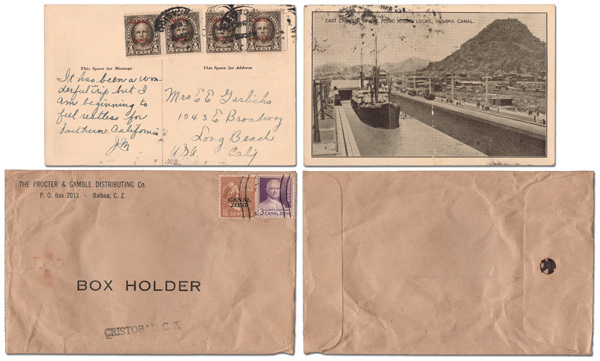 This Space for Message
This Space for Address
It has been a won-
derful trip but I
am beginning to
feel restless for
Southern California
JM
Mrs E E Garlichs
1043 E Broadway
Long Beach
Calif
EAST CHAMBER OF THE PEDRO MIGUEL LOCKS, PANAMA CANAL.
THE PROCTER & GAMBLE DISTRIBUTING Co.
P. O. Box 2013 - Balboa, C. Z.
CANAL
ZONE
3
CANAL ZONE
BOX HOLDER
CRISTOBAL C. Z.